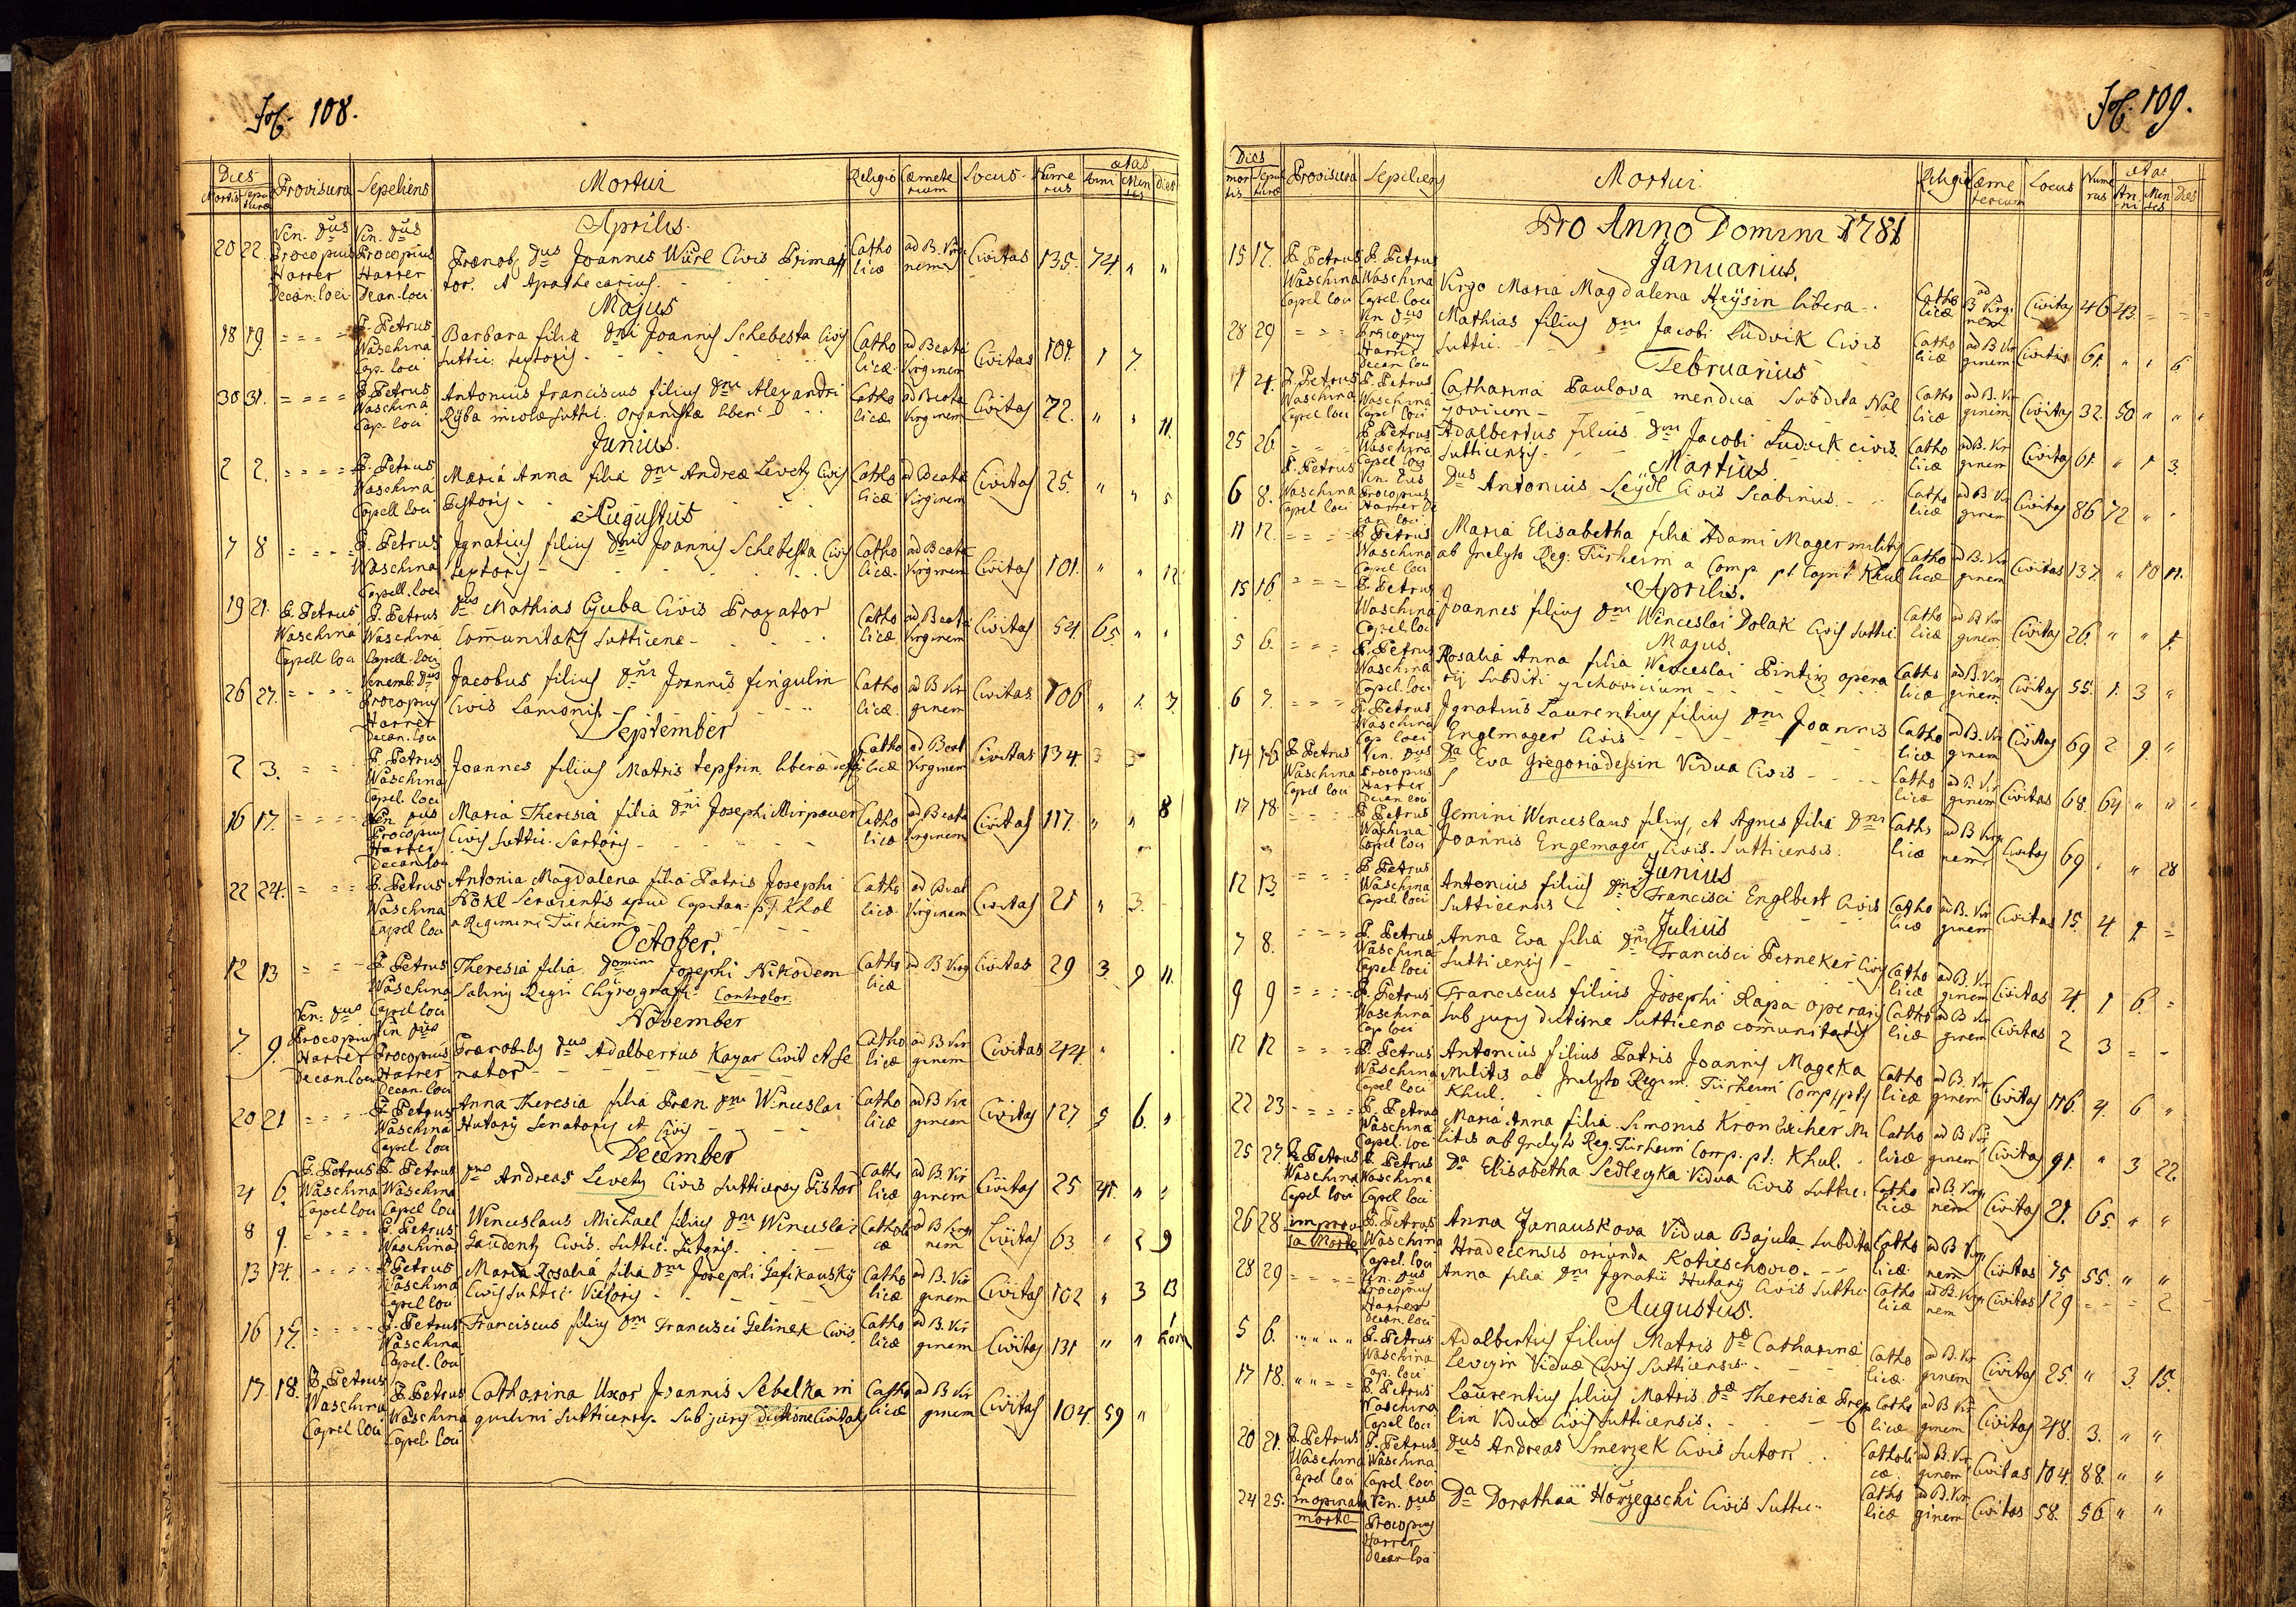 108.
Dies Provisura Sepeliens Mortui Religio Locus Numerus ætas
Mortis Anni Menses dies
Aprilis.
20 22. Ven. Dus Procopius Harrer Decan: loci Ven. Dus Procopius Harrer Decan. loci Prænob. Dus Joannes Würl Civis Catholicæ ad B. Virginem Civitas 135. 74 " "
tor. et Apothecarius.
Majus
18 19. = = = = P. Petrus Waschina Cap. loci Barbara filia Dni Joannis Schebesta Civis Catholicæ ad Beatā Virginem Civitas 101. 1 7.
Suttic: textoris
30 31. = = = = P. Petrus Waschina Cap. loci Antonius franciscus filius Dni Alexandri Catholicæ ad Beatā Virginem Civitas 72. " " 11.
Ryba incolæ Suttic. Organistæ liberi
Junius.
2 2. = = = = P. Petrus Waschina Capell loci Maria Anna filia Dni Andreæ Levety Civis Catholicæ ad Beatā Virginem Civitas 25. " " 5
Pistoris
Augustus
7 8 = = = = P. Petrus Waschina Capell. loci Ignatius filius Dni Joannis Schebesta Civis Catholicæ ad Beatā Virginem Civitas 101. " " 12
textoris
19 21. P. Petrus Waschina Capell loci P. Petrus Waschina Capell. loci Dus Mathias Civis Catholicæ ad Beatā Virginem Civitas 54 65. " "
Communitatis Sutticenæ
26 27. = = = = Procopius Harrer Decan. loci Jacobus filius Dni Joannis fingulin Catholicæ ad B Virginem Civitas 106 " 1. 7.
Civis Lanionis
September
2 3. = = P. Petrus Waschina Capel. loci Joannes filius Matris tepfrin liberæ Catholicæ ad Beat Virginem Civitas 134 3 3
16 17. = = = = Ven Dus Procopius Harrer Decan loci Maria Theresia filia Dni Josephi Mirpauer Catholicæ ad Beatā Virginem Civitas 117. " " 8
Civis Suttic. Sartoris
22 24. = = = P. Petrus Waschina Capel loci Antonia Magdalena filia Patris Josephi Catholicæ ad Beat Virginem Civitas 21 " 3.
Hökl Servientis apud Capitan: pt. Khol
a Regimini Türheim
October.
12 13 = = P. Petrus Waschina Capell loci Theresia filia Domini Josephi Nikodem Catholicæ ad B Virg Civitas 29 3 9 11.
Salinis Regii Chyrografi. Controlor
November
7. 9. Ven: Dus Procopius Harrer Decan loci Ven Dus Procopius Harrer Decan. loci Prænobilis Dus Adalbertus Kayar Civis et Se Catholicæ ad B Virginem Civitas 44.
nator
20 21 = = = = P. Petrus Waschina Capel loci Anna Theresia filia Præn Dni Winceslai Catholicæ ad B Virginem Civitas 127 5 6. "
Hutary Senatoris et Civis
December
4 6. P. Petrus Waschina Capel loci P. Petrus Waschina Capel loci Dus Andreas Levety Civis Sutticensis Pistor Catholicæ ad B. Virginem Civitas 25 41. " "
8 9. = = = = P. Petrus Waschina Wenceslaus Michael filius Dni Winceslai Catholicæ ad B Virginem Civitas 63. " 2 9
Gaudenty Civis. Suttic:
13 14. = = = = P. Petrus Waschina Capel loci Maria Rosalia filia Dni Josephi Catholicæ ad B. Virginem Civitas 102 " 3 13
Civis Suttic: Vietoris
16 17. = = = = P. Petrus Waschina Capel. loci Franciscus filius Dni Francisci Gelinek Civis Catholicæ ad B. Virginem Civitas 131 " "
17 18. P. Petrus Waschina Capel loci P. Petrus Waschina Capel. loci Catharina Uxor Joannis Sebelka in Catholicæ ad B Virginem Civitas 104 59 "
quilini Sutticensis Sub jurisdictione Civitatis
109.
Dies Provisura Sepeliens Mortui Religio Cæmeterium Locus Numerus ætas
mortis Sepulturæ Anni Menses Dies
Pro Anno Domini 1781
Januarius.
15 17. P. Petrus Waschina Capel loci P. Petrus Waschina Capel loci Virgo Maria Magdalena Heysin libera Catholicæ ad B Virginem Civitas 46 43 = = =
28 29 = = = Ven Dus Procopius Harrer Decan loci Mathias filius Dni Jacobi Ludvik Civis Catholicæ ad B Virginem Civitas 61. " " 6
Suttic.
Februarius
24. P. Petrus Waschina Capel loci P. Petrus Waschina Capel loci Catharina Paulova mendica Subdita Catholicæ ad B. Virginem Civitas 32. 50 " "
25 26. = = P. Petrus Waschina Capel loci Adalbertus filius Dni Jacobi Ludvik civis Catholicæ ad B. Virginem Civitas 61. " 1 3.
Sutticensis
Martius
6 8. P. Petrus Waschina Capel loci Ven. Dus Procopius Harrer Decan loci Dus Antonius Seydl Civis Scabinus Catholicæ ad B Virginem Civitas 86 72 " "
11 12. = = = = P. Petrus Waschina Capel loci Maria Elisabetha filia Adami Mager militis Catholicæ ad B. Virginem Civitas 137. " 10 11.
ab Inclyto Reg: Türheim a Comp. pt. Capit. Khul
Aprilis.
15 16. = = = P. Petrus Waschina Capel loci Joannes filius Dni Winceslai Dolak Civis Suttic Catholicæ ad B Virginem Civitas 26. " " 1.
Majus.
5 6. = = = P. Petrus Waschina Capel. loci Rosalia Anna filia Wenceslai opera Catholicæ ad B. Virginem Civitas 55. 1. 3 "
rij Subditi
6 7. = = = P. Petrus Waschina Cap. loci Ignatius Laurentius filius Dni Joannis Catholicæ ad B. Virginem Civitas 69 2 9. "
Englmager Civis
14 16 P. Petrus Waschina Capel loci Ven. Dus Procopius Harrer Decan loci Da Eva Gregoriadessin Vidua Civis Catholicæ ad B. Virginem Civitas 68 64 " "
17 18 = = = = P. Petrus Waschina Capel loci Gemini Wenceslaus filius, et Agnes filia Dni Catholicæ ad B Virginem Civitas 69 " " 28
Joannis Englmager Civis. Sutticensis.
Junius
12 13 = = = P. Petrus Waschina Capel loci Antonius filius Dni Francisci Englbert Civis Catholicæ ad B. Virginem Civitas 15. 4. 1. =
Sutticensis
Julius
7 8. = = = P. Petrus Waschina Capel loci Anna Eva filia Dni Francisci Perneker Civis Catholicæ ad B. Virginem Civitas 4. 1 6. =
Sutticensis
9 9 = = = = P. Petrus Waschina Cap loci Franciscus filius Josephi Rapa operarij Catholicæ ad B Virginem Civitas 2 3 = -
sub jurisdictione Sutticenæ communitatis
12 12 = = = P. Petrus Waschina Capel loci Antonius filius Patris Joannis Mageka Catholicæ ad B. Virginem Civitas 116. 4. 6 "
Militis ab Inclyto Regim. Türheim Comp: pt.
Khul.
22 23 = = = = P. Petrus Waschina Capel. loci Maria Anna filia Simonis Mi Catholicæ ad B Virginem Civitas 91. " 3 22.
litis ab Inclyto Reg. Türheim Comp. pt: Khul.
25 27. P. Petrus Waschina Capel loci P. Petrus Waschina Capel loci Da Elisabetha Sedlegka Vidua Civis Suttic: Catholicæ ad B. Virginem Civitas 21. 65. " "
26 28 improvisa Morte P. Petrus Waschina Capel loci Anna Janauskova Vidua Bajula. Subdita Catholicæ ad B Virginem Civitas 75 55. " "
Hradecensis oriunda Kotieschovio.
28 29 = = = = Ven. Dus Procopius Harrer Decan. loci Anna filia Dni Ignatii Hutary Civis Suttic: Catholicæ ad B. Virginem Civitas 129 = = = 2
Augustus.
5 6. " " " " P. Petrus Waschina Cap. loci Adalbertus filius Matris Dæ Catharinæ Catholicæ ad B. Virginem Civitas 25. " 3. 15.
Viduæ Civis Sutticensis
17 18. " " = = P. Petrus Waschina Capel loci Laurentius filius Matris Dæ Theresiæ Catholicæ ad B Virginem Civitas 48. 3. " "
lin Viduæ Civis Sutticensis.
20 21. P. Petrus Waschina Capel loci P. Petrus Waschina Capel loci Dus Andreas Smerzek Civis Sutor Catholicæ ad B. Virginem Civitas 104. 88. " "
24 25. inopinata morte Ven. Dus Procopius Harrer Decan loci Da Dorothæa Horzegschi Civis Suttic: Catholicæ ad B. Virginem Civitas 58. 56 " "